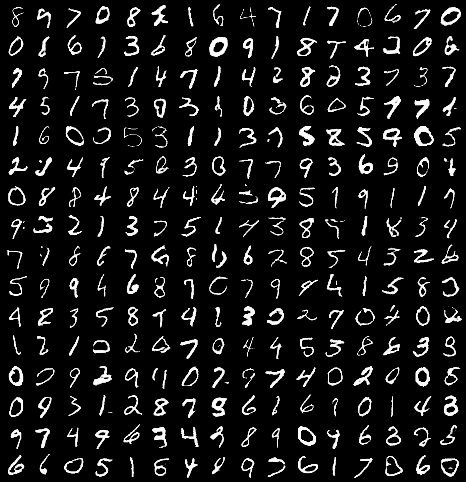 8 9 7 0 8 1 6 4 7 1 7 0 6 7 0
0 1 6 1 3 6 8 0 9 1 8 7 4 2 0 8
7 9 7 3 1 4 7 1 4 2 8 2 3 7 3 7
4 5 1 7 3 0 3 1 0 3 6 0 5 9 7 1
1 6 0 0 5 3 1 1 3 7 5 8 5 9 0 5
2 4 9 5 8 3 8 7 7 9 3 6 9 0 1
0 8 8 4 8 4 4 6 5 9 5 1 9 1 1 9
9 5 2 1 3 7 5 1 4 3 8 9 1 8 3 4
7 9 8 8 7 6 8 6 6 2 8 5 4 3 2 6
5 9 9 4 6 8 7 0 7 9 9 4 1 5 8 0
4 2 3 5 8 7 4 2 3 0 2 7 0 4 0 2
1 2 1 0 2 6 7 0 4 4 5 3 8 6 3 3
0 0 9 2 9 4 0 7 9 7 4 0 2 0 0 5
0 9 3 1 2 8 7 9 6 1 6 9 0 1 4 3
9 7 4 9 6 3 4 2 8 9 0 9 6 3 2 8
6 6 0 5 1 5 4 8 9 3 6 1 7 8 6 0